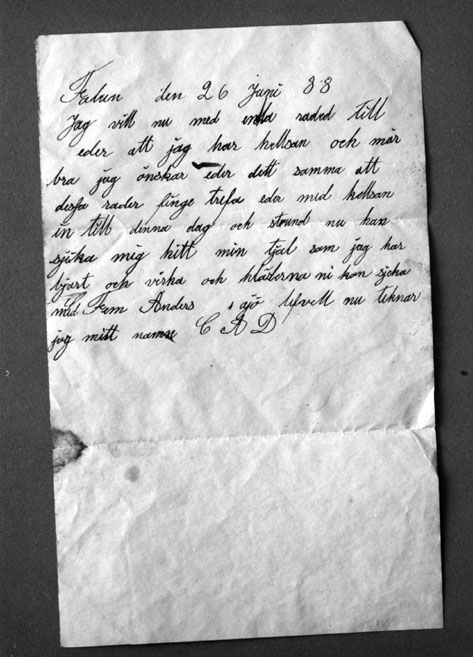 Falun den 26 Juni 88
Jag vill nu med enkla raded till
eder att jag har hellsan och mår
bra jag önskar eder dett samma att
dessa rader finge trefa eder med hellsan
in till denna dag och stound nu kan
sjika mig hitt min tjäl som jag har
bjart och virka och kläderna ni kan sjcka
med Fem Anders i ajö lefvell nu teknar
jag mitt namn C A D